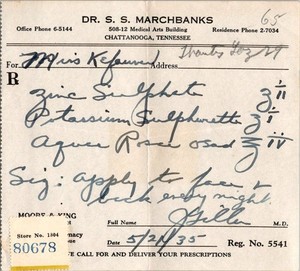 65
DR. S. S. MARCHBANKS
Office Phone 6-5144
508-12 Medical Arts Building
Residence Phone 2-7034
CHATTANOOGA, TENNESSEE
For Miss Kefauver Address
R
Zinc Sulphate ʒ ii
Potassium Sulphurette ʒ i
Aqua Rosa ʒ iv
Sig: apply to face &
back every night.
MOORE & KING
Full Name
M.D.
Store No. 1104
Date 5/21/35
Reg. No. 5541
80678
WE CALL FOR AND DELIVER YOUR PRESCRIPTIONS